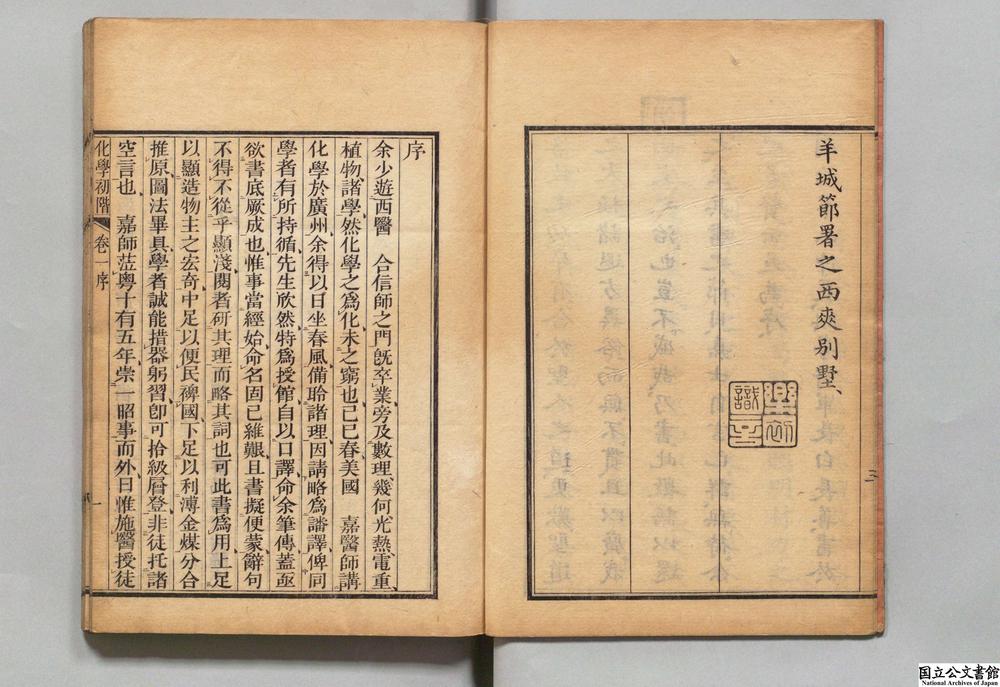 羊城節署之西爽別墅、
三
序
余少遊西醫　合信師之門、旣卒業、旁及數理、幾何、光、熱、電、重、
植物、諸學、然化學之爲化、未之窮也、己巳春、美國　嘉醫師講
化學於廣州、余得以日坐春風、備聆諸理、因請略爲譒譯、俾同
學者有所持循、先生欣然特爲授館、自以口譯、命余筆傳、蓋亟
欲書底厥成也、惟事當經始、命名固已維艱、且書擬便蒙、辭句
不得不從乎顯淺、閱者研其理而略其詞也可、此書爲用、上足
以顯造物主之宏奇、中足以便民裨國、下足以利溥金煤、分合
推原、圖法畢具、學者誠能措器躬習、卽可拾級層登、非徒托諸
空言也、　嘉師蒞粵十有五年、崇一昭事而外、日惟施醫授徒
化學初階　卷一序　一
国立公文書館
National Archives of Japan